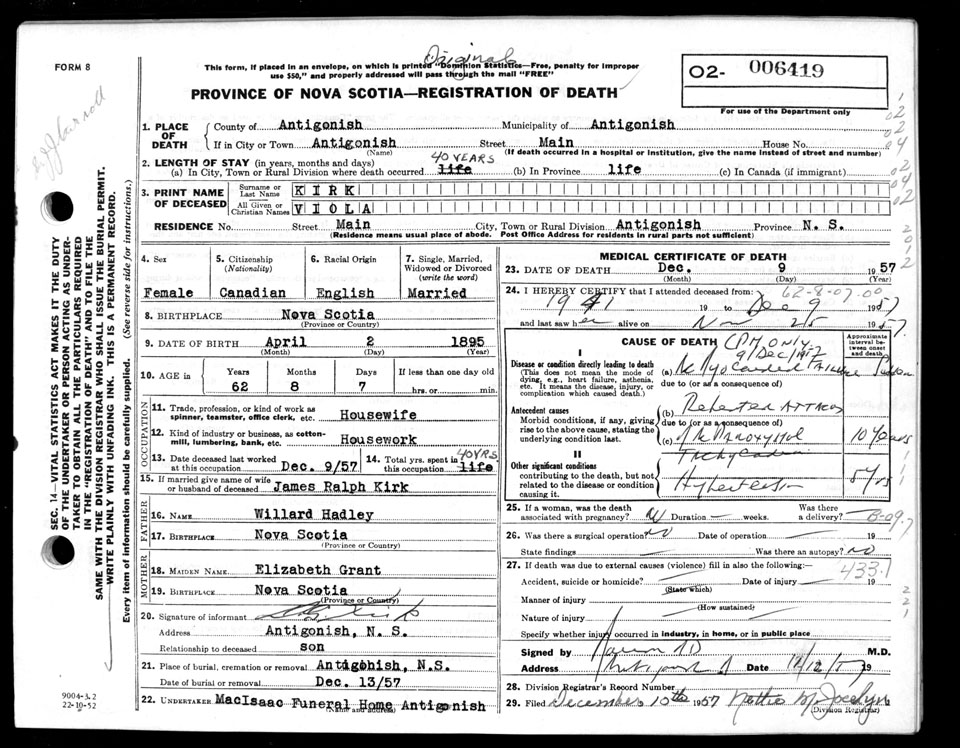 FORM 8
Original
This form, if placed in an envelope, on which is printed "Dominion Statistics—Free, penalty for improper
use $50," and properly addressed will pass through the mail "FREE"
PROVINCE OF NOVA SCOTIA—REGISTRATION OF DEATH
02- 006419
For use of the Department only
SEC. 14—VITAL STATISTICS ACT MAKES IT THE DUTY
OF THE UNDERTAKER OR PERSON ACTING AS UNDER-
TAKER TO OBTAIN ALL THE PARTICULARS REQUIRED
IN THE "REGISTRATION OF DEATH" AND TO FILE THE
SAME WITH THE DIVISION REGISTRAR WHO SHALL ISSUE THE BURIAL PERMIT.
WRITE PLAINLY WITH UNFADING INK. THIS IS A PERMANENT RECORD.
Every item of information should be carefully supplied. (See reverse side for instructions.)
1. PLACE OF DEATH
County of Antigonish Municipality of Antigonish
If in City or Town Antigonish Street Main House No.
(Name) (If death occurred in a hospital or institution, give the name instead of street and number)
2. LENGTH OF STAY (in years, months and days) 40 YEARS
(a) In City, Town or Rural Division where death occurred life (b) In Province life (c) In Canada (if immigrant)
3. PRINT NAME OF DECEASED
Surname or Last Name KIRK
All Given or Christian Names VIOLA
RESIDENCE No. Street Main City, Town or Rural Division Antigonish Province N. S.
(Residence means usual place of abode. Post Office Address for residents in rural parts not sufficient)
4. Sex
Female
5. Citizenship
(Nationality)
Canadian
6. Racial Origin
English
7. Single, Married,
Widowed or Divorced
(write the word)
Married
8. BIRTHPLACE Nova Scotia
(Province or Country)
9. DATE OF BIRTH April 2 1895
(Month) (Day) (Year)
10. AGE in
Years Months Days If less than one day
62 8 7 hrs. or min.
OCCUPATION
11. Trade, profession, or kind of work as
spinner, teamster, office clerk, etc. Housewife
12. Kind of industry or business, as cotton-
mill, lumbering, bank, etc. Housework
13. Date deceased last worked
at this occupation Dec. 9/57
14. Total yrs. spent in
this occupation life 40 YRS
15. If married give name of wife
or husband of deceased James Ralph Kirk
FATHER
16. NAME Willard Hadley
17. BIRTHPLACE Nova Scotia
(Province or Country)
MOTHER
18. MAIDEN NAME Elizabeth Grant
19. BIRTHPLACE Nova Scotia
(Province or Country)
20. Signature of informant
Address Antigonish, N. S.
Relationship to deceased son
21. Place of burial, cremation or removal Antigohish, N.S.
Date of burial or removal Dec. 13/57
22. UNDERTAKER MacIsaac Funeral Home Antigonish
(Name and address)
9004-3.2
22-10-52
MEDICAL CERTIFICATE OF DEATH
23. DATE OF DEATH Dec. 9 1957
(Month) (Day) (Year)
24. I HEREBY CERTIFY that I attended deceased from:
62-8-07-00
1941 19 to Dec 9 1957
and last saw her alive on Nov 25 1957.
CAUSE OF DEATH
Approximate
interval be-
tween onset
and death.
CPM only
9/Dec/1957
I
Disease or condition directly leading to death
(This does not mean the mode of
dying, e.g., heart failure, asthenia,
etc. It means the disease, injury, or
complication which caused death.)
(a) Failure Sudden
due to (or as a consequence of)
Antecedent causes
Morbid conditions, if any, giving
rise to the above cause, stating the
underlying condition last.
(b) Repeated Attacks
due to (or as a consequence of)
(c) of Paroxysmal 10 years
Tachycardia
II
Other significant conditions
contributing to the death, but not
related to the disease or condition
causing it.
Hypertension 5 yrs
25. If a woman, was the death
associated with pregnancy? N Duration weeks.
Was there
a delivery?
26. Was there a surgical operation? NO Date of operation 19
State findings Was there an autopsy? NO
27. If death was due to external causes (violence) fill in also the following:— 433.1
Accident, suicide or homicide? Date of injury 19
(State which)
Manner of injury
(How sustained)
Nature of injury
Specify whether injury occurred in industry, in home, or in public place
Signed by M.D.
Address Antigonish Date 12/12/57 19
28. Division Registrar's Record Number
29. Filed December 10th 1957 Nettie M. Jocelyn
(Division Registrar)